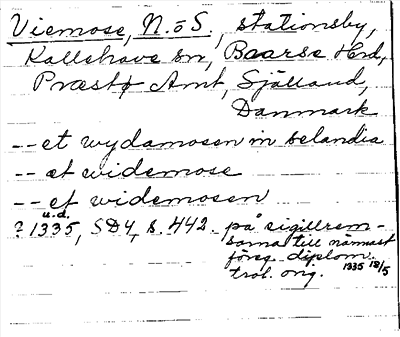 Viemose, N. ö S., stationsby,
Kallehave sn, Baarse Hrd,
Præstø Amt, Själland,
Danmark
-- et wydamosen in selandia
-- et widemose
-- et widemosen
u.d.
? 1335, SD4, s. 442. på sigillrem-
sorna till närmast
föreg. diplom.
trol. orig. 1335 18/5